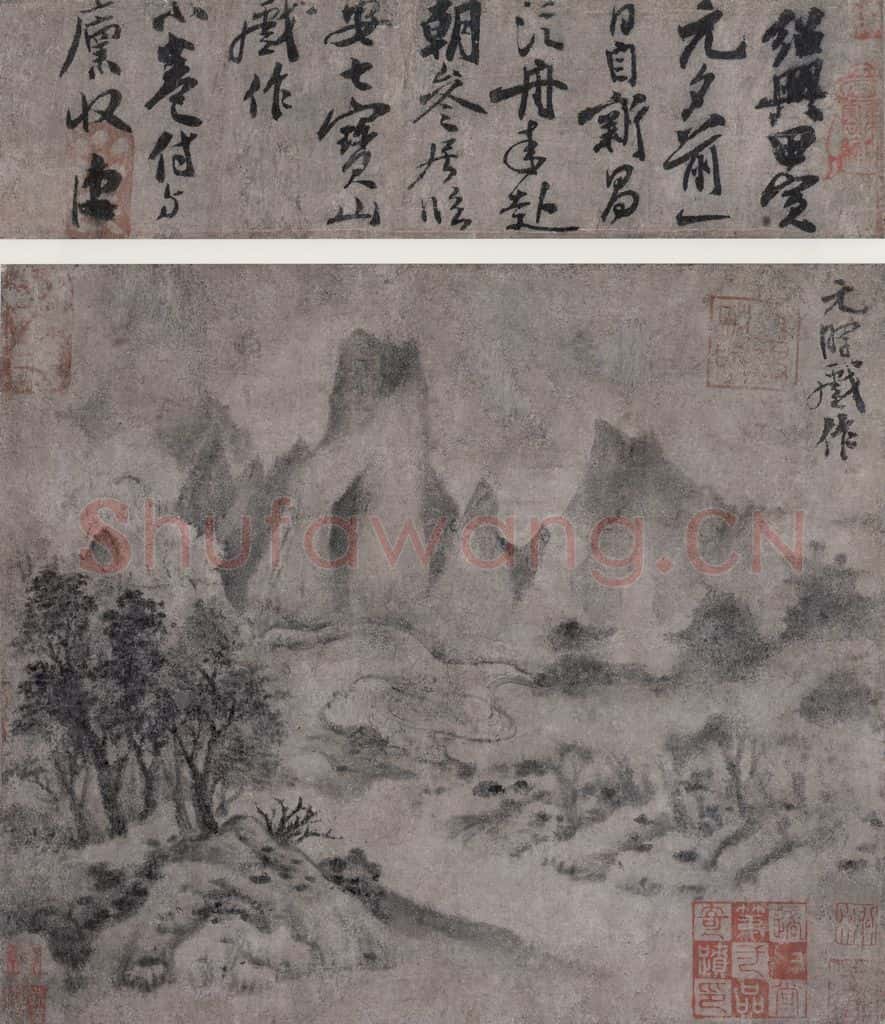 紹興甲寅
元夕前一
日自新昌
泛舟来赴
朝參居臨
安七寶山
戲作
小卷付与
廩收
元暉戲作
Shufawang.CN